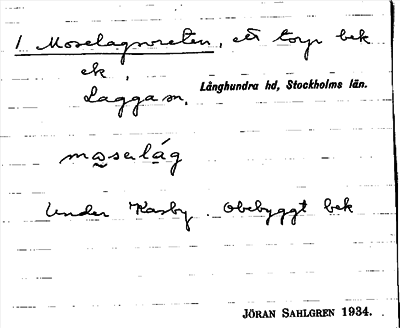 1 Moselagsroten, ett torp bek
ek,
Långhundra hd, Stockholms län.
Lagga sn.
maselág
Under Kasby. Obebyggt bek
JÖRAN SAHLGREN 1934.